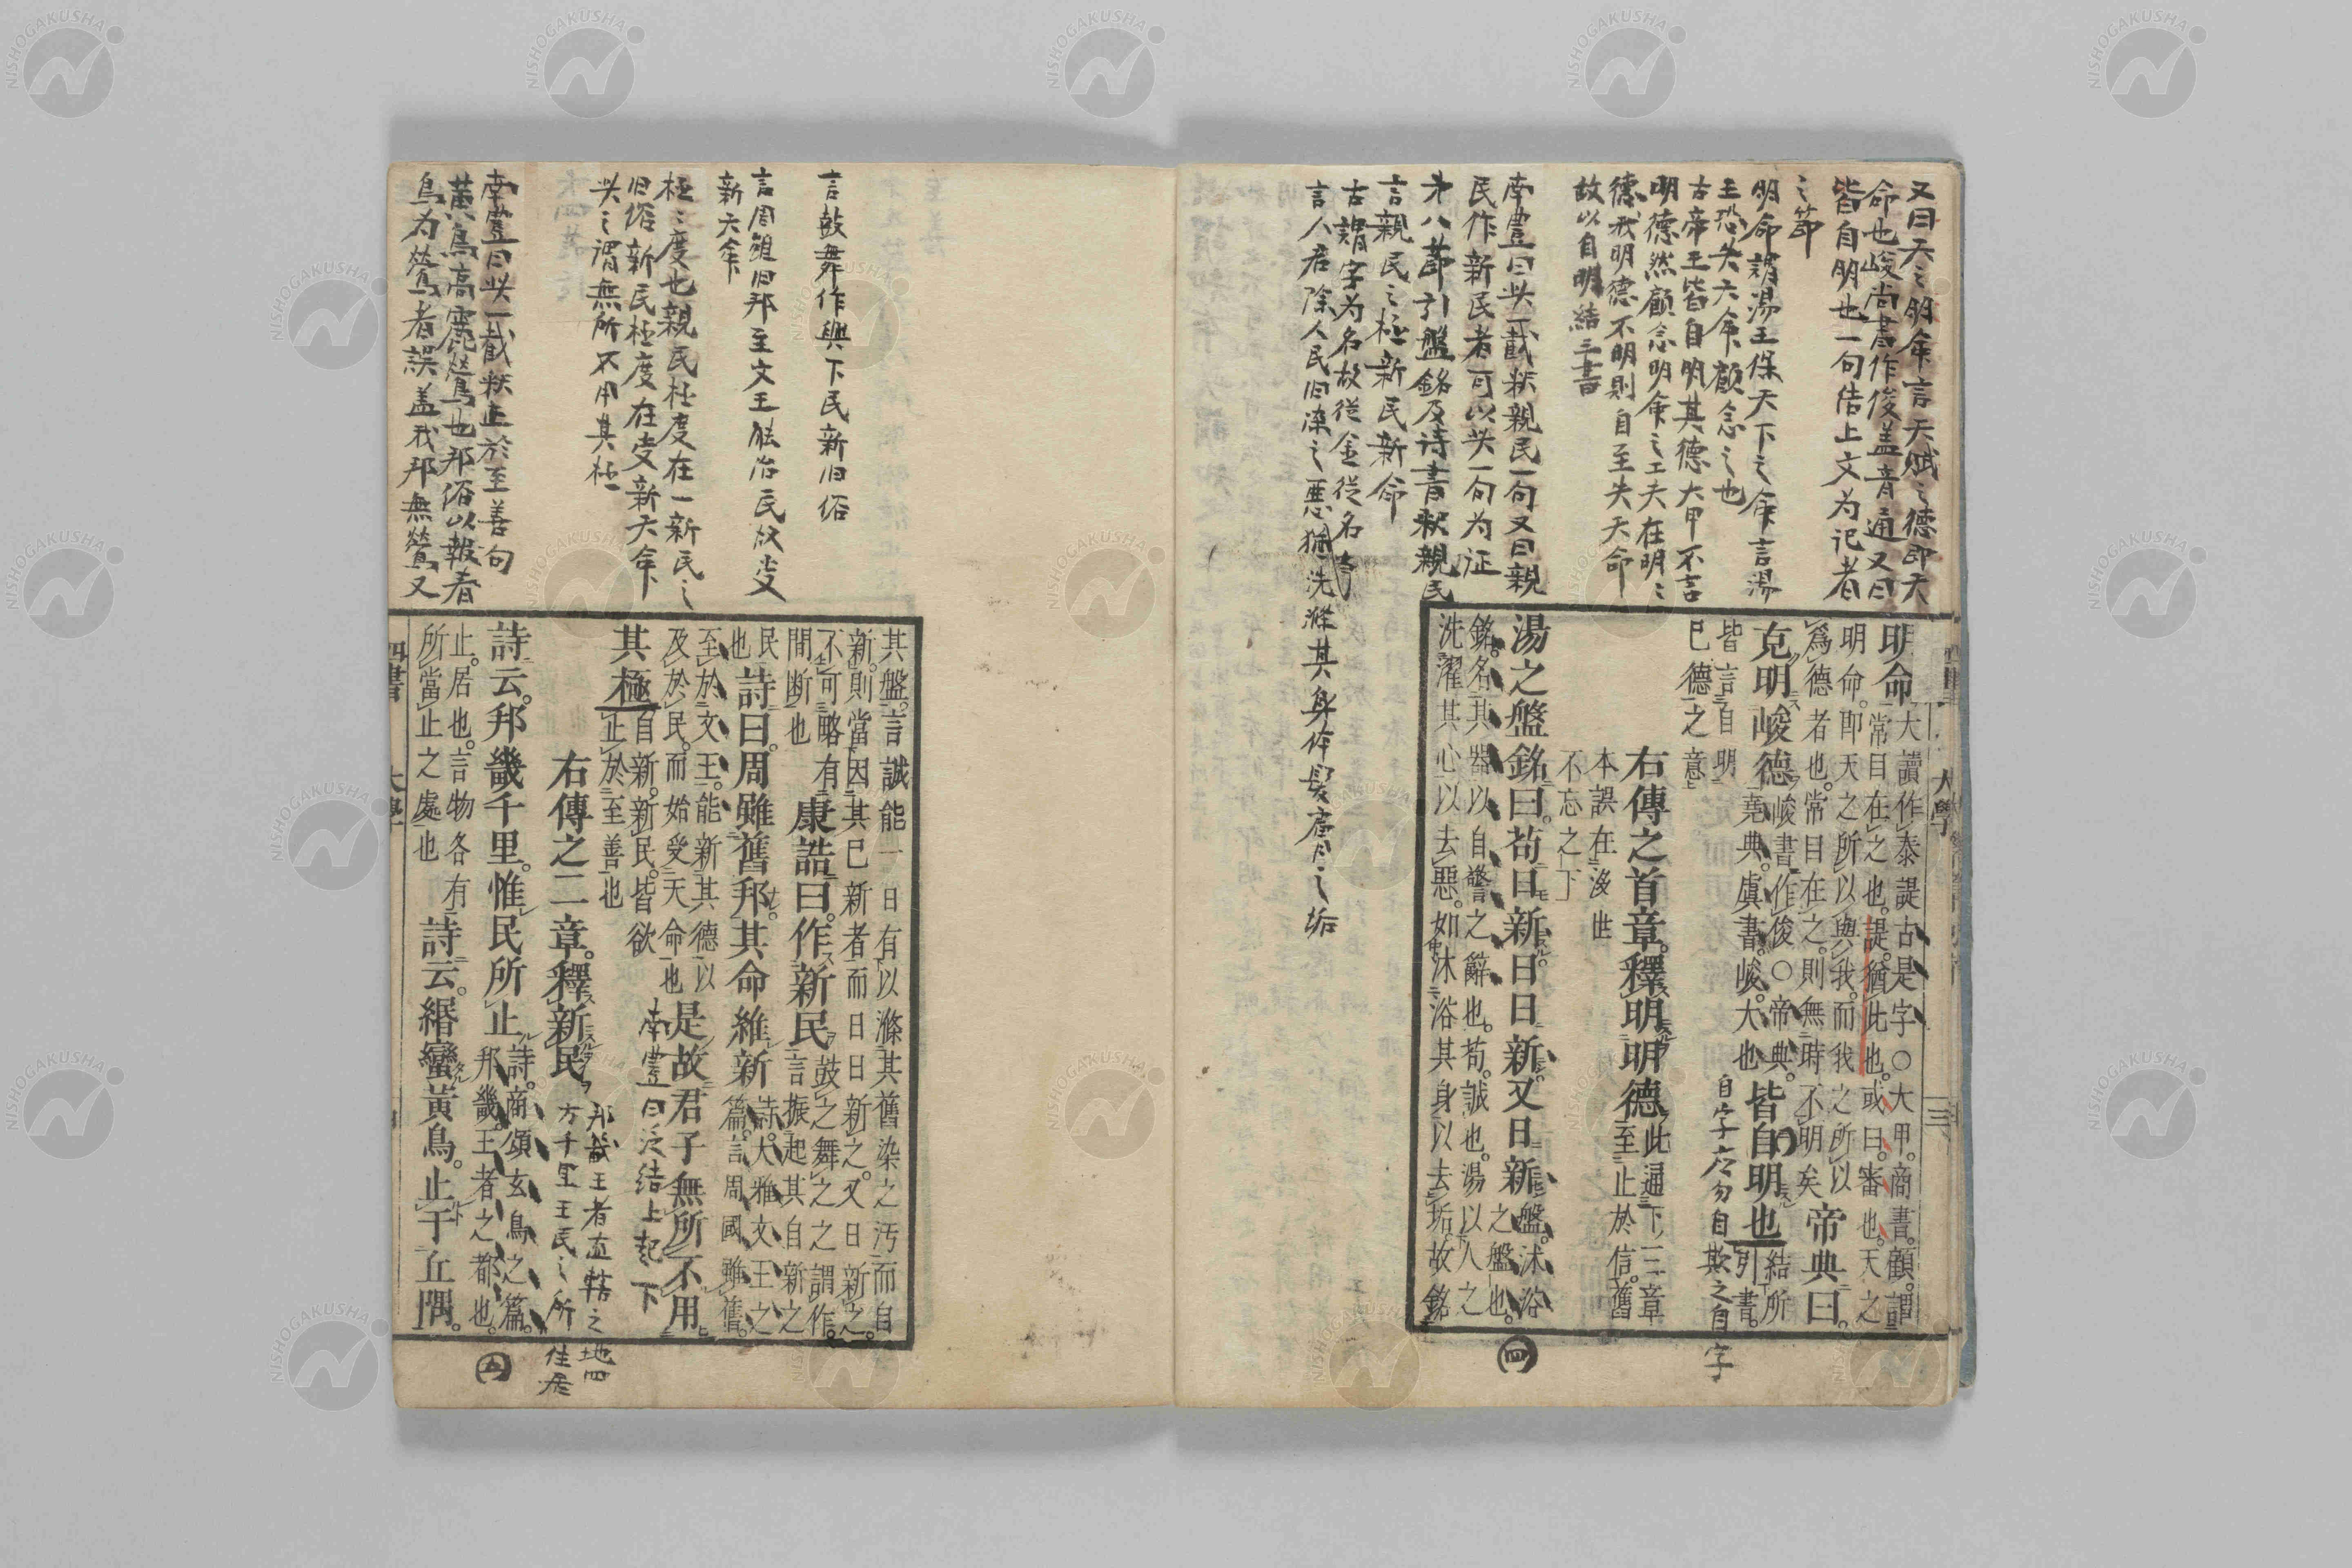 又曰天之明命言天賦之德即天
命也峻尚書作俊盖音通又曰
皆自明也一句结上文为记者
之節
明命謂湯王保天下之命言湯
王恐失大命顧念之也
古帝王皆自明其德大甲不言
明德然顧念明命之工夫在明々
德我明德不明則自至失天命
故以自明結三書
南豊曰此一截釈親民一句又曰親
民作新民者可以此一句为证
才八節引盤銘及诗書釈親民
言親民之极新民新命
古謂字为名故従金従名
言人君除人民旧染之悪猶洗滌其身体髪膚之垢
大學
三
明命大讀作泰諟古是字○大甲商書顧謂
常目在之也諟猶此也或曰審也天之
明命即天之所以與我而我之所以
爲德者也常目在之則無時不明矣帝典曰
克明峻德峻書作俊○帝典
堯典虞書峻大也皆自明也結所
引書
皆言自明
己德之意
自字应勿自欺之自字
右傳之首章釋明明德此通下三章
至止於信舊
本誤在沒世
不忘之下
湯之盤銘曰苟日新日日新又日新盤沐浴
之盤也
銘名其器以自警之辭也苟誠也湯以人之
洗濯其心以去惡如沐浴其身以去垢故銘
四
言鼓舞作興下民新旧俗
言周雖旧邦至文王能治民故受
新大命
极々度也親民极度在一新民之
旧俗新民极度在受新天命
此之謂無所不用其极
南豊曰此一截釈止於至善句
黄鳥高麗鶯也邦俗以報春
鳥为鶯者誤盖我邦無鶯又
其盤言誠能一日有以滌其舊染之汚而自
新則當因其已新者而日日新之又日新之
不可略有
間断也康誥曰作新民鼓之舞之之謂作
言振起其自新之
民
也詩曰周雖舊邦其命維新詩大雅文王之
篇言周國雖舊
至於文王能新其德以
及於民而始受天命也是故君子無所不用
南豊曰泛结上起下
其極自新新民皆欲
止於至善也
右傳之二章釋新民
邦畿王者直轄之地四
方千里王民之所住居
詩云邦畿千里惟民所止詩商頌玄鳥之篇
邦畿王者之都也
止居也言物各有
所當止之處也詩云緡蠻黃鳥止于丘隅
五
四書
大學
NISHOGAKUSHA